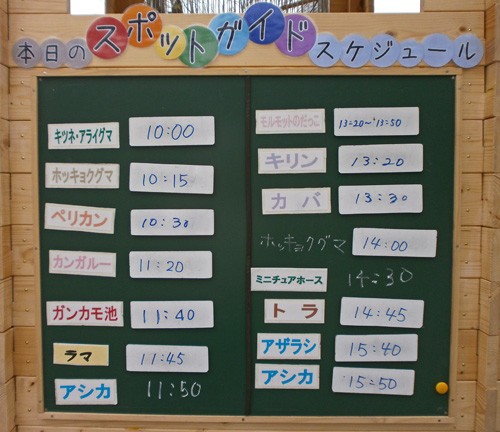 本日のスポットガイドスケジュール
キツネ・アライグマ 10:00
ホッキョクグマ 10:15
ペリカン 10:30
カンガルー 11:20
ガンカモ池 11:40
ラマ 11:45
アシカ 11:50
モルモットのだっこ 13:20~13:50
キリン 13:20
カバ 13:30
ホッキョクグマ 14:00
ミニチュアホース 14:30
トラ 14:45
アザラシ 15:40
アシカ 15:50